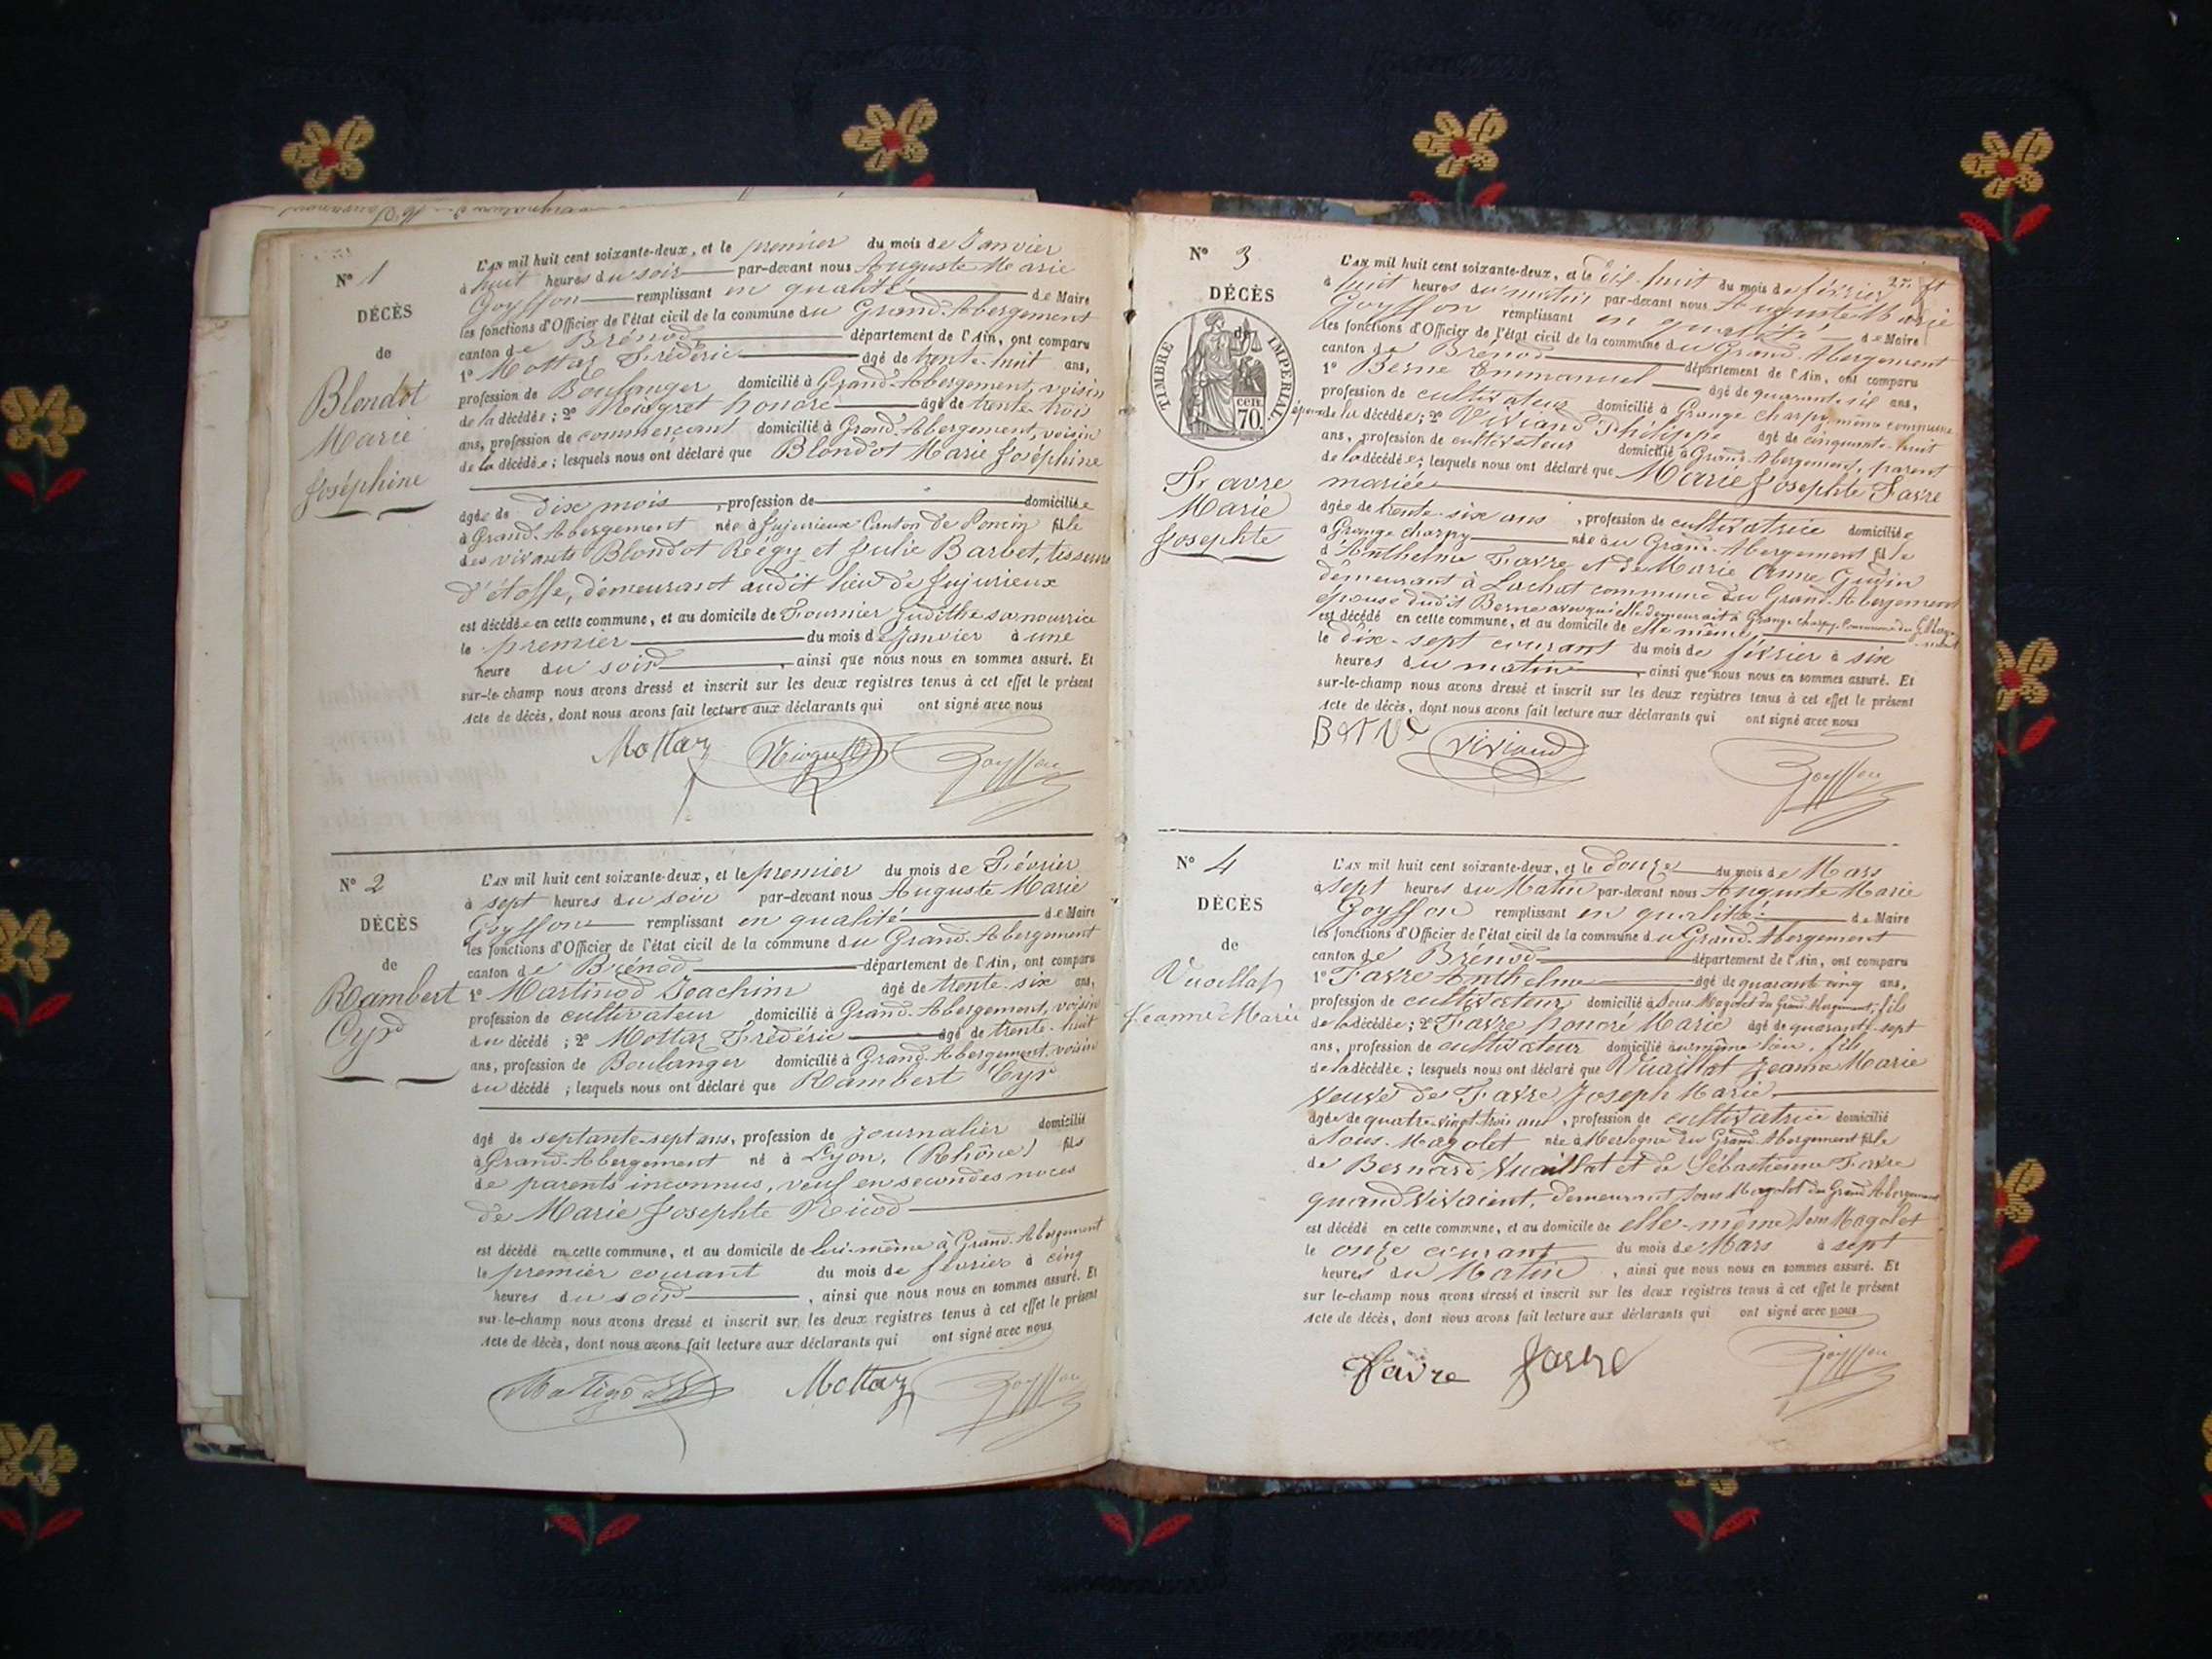 N° 1
DÉCÈS
de
Blondot
Marie
Joséphine
L'AN mil huit cent soixante-deux, et le premier du mois de Janvier
à huit heures du soir par-devant nous Auguste Marie
Goyffon remplissant en qualité de Maire
les fonctions d'Officier de l'état civil de la commune du Grand-Abergement
canton de Brénod département de l'Ain, ont comparu
1° Mottaz Frédéric âgé de trente-huit ans,
profession de Boulanger domicilié à Grand-Abergement, voisin
de la décédée; 2° honoré âgé de trente trois
ans, profession de commerçant domicilié à Grand-Abergement, voisin
de la décédée; lesquels nous ont déclaré que Blondot Marie Joséphine
âgée de dix mois, profession de domiciliée
à Grand-Abergement née à Jujurieux Canton de Poncin fille
des vivants Blondot Régy et Julie Barbet, tisseurs
d'étoffe, demeurant audit lieu de Jujurieux
est décédée en cette commune, et au domicile de Fournier Judithe sa nourrice
le premier du mois de Janvier à une
heure du soir, ainsi que nous nous en sommes assuré. Et
sur-le-champ nous avons dressé et inscrit sur les deux registres tenus à cet effet le présent
Acte de décès, dont nous avons fait lecture aux déclarants qui ont signé avec nous
Mottaz Goyffon
N° 2
DÉCÈS
de
Rambert
Cyr
L'AN mil huit cent soixante-deux, et le premier du mois de Février
à sept heures du soir par-devant nous Auguste Marie
Goyffon remplissant en qualité de Maire
les fonctions d'Officier de l'état civil de la commune du Grand-Abergement
canton de Brénod département de l'Ain, ont comparu
1° Martinod Joachim âgé de trente-six ans,
profession de cultivateur domicilié à Grand-Abergement, voisin
du décédé; 2° Mottaz Frédéric âgé de trente-huit
ans, profession de Boulanger domicilié à Grand-Abergement, voisin
du décédé; lesquels nous ont déclaré que Rambert Cyr
âgé de septante-sept ans, profession de journalier domicilié
à Grand-Abergement né à Lyon, (Rhône) fils
de parents inconnus, veuf en secondes noces
de Marie Josephte Nicod
est décédé en cette commune, et au domicile de lui-même à Grand-Abergement
le premier courant du mois de février à cinq
heures du soir, ainsi que nous nous en sommes assuré. Et
sur-le-champ nous avons dressé et inscrit sur les deux registres tenus à cet effet le présent
Acte de décès, dont nous avons fait lecture aux déclarants qui ont signé avec nous
Mottaz Goyffon
N° 3
DÉCÈS
de
TIMBRE IMPÉRIAL
70 cen.
Favre
Marie
Josephte
L'AN mil huit cent soixante-deux, et le dix-huit du mois de février
à huit heures du matin par-devant nous Auguste Marie
Goyffon remplissant en qualité de Maire
les fonctions d'Officier de l'état civil de la commune du Grand-Abergement
canton de Brénod département de l'Ain, ont comparu
1° Berne Emmanuel âgé de quarante-six ans,
profession de cultivateur domicilié à Grange charpy, même commune
époux de la décédée; 2° Viviand Philippe âgé de cinquante-huit
ans, profession de cultivateur domicilié à Grand-Abergement, parent
de la décédée; lesquels nous ont déclaré que Marie Josephte Favre
mariée
âgée de trente-six ans, profession de cultivatrice domiciliée
à Grange charpy née au Grand-Abergement fille
d'Anthelme Favre et de Marie Anne Gudin
demeurant à Lachat commune du Grand-Abergement
épouse dudit Berne avec qui elle demeurait à Grange charpy Commune du G. Abergement
est décédé en cette commune, et au domicile de elle-même
le dix-sept courant du mois de février à six
heures du matin, ainsi que nous nous en sommes assuré. Et
sur-le-champ nous avons dressé et inscrit sur les deux registres tenus à cet effet le présent
Acte de décès, dont nous avons fait lecture aux déclarants qui ont signé avec nous
Berne Viviand Goyffon
N° 4
DÉCÈS
de
Vuaillat
Jeanne Marie
L'AN mil huit cent soixante-deux, et le douze du mois de Mars
à sept heures du Matin par-devant nous Auguste Marie
Goyffon remplissant en qualité de Maire
les fonctions d'Officier de l'état civil de la commune du Grand-Abergement
canton de Brénod département de l'Ain, ont comparu
1° Favre Anthelme âgé de quarante cinq ans,
profession de cultivateur domicilié à Sous-Magolet du Grand Abergement, fils
de la décédée; 2° Favre honoré Marie âgé de quarante-sept
ans, profession de cultivateur domicilié au même lieu, fils
de la décédée; lesquels nous ont déclaré que Vuaillat Jeanne Marie
veuve de Favre Joseph Marie
âgée de quatre-vingt-trois ans, profession de cultivatrice domicilié
à Sous-Magolet née à du Grand-Abergement fille
de Bernard Vuaillat et de Sébastienne Favre
quand vivaient, demeurant Sous Magolet du Grand Abergement
est décédé en cette commune, et au domicile de elle-même Sous Magolet
le onze courant du mois de Mars à sept
heures du Matin, ainsi que nous nous en sommes assuré. Et
sur le-champ nous avons dressé et inscrit sur les deux registres tenus à cet effet le présent
Acte de décès, dont nous avons fait lecture aux déclarants qui ont signé avec nous
Favre favre Goyffon